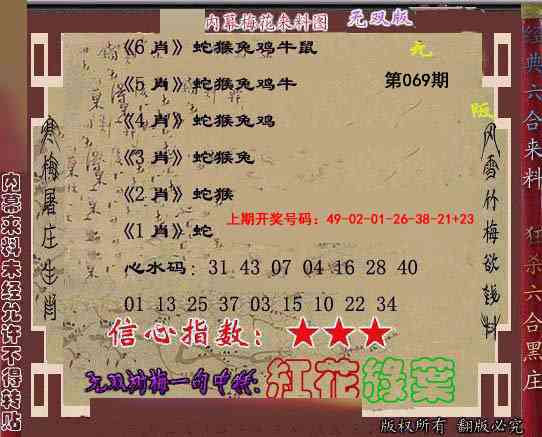 内幕梅花来料图 无双版
《6 肖》蛇猴兔鸡牛鼠
《5 肖》蛇猴兔鸡牛
第069期
《4 肖》蛇猴兔鸡
《3 肖》蛇猴兔
《2 肖》蛇猴
上期开奖号码：49-02-01-26-38-21+23
《1 肖》蛇
心水码：31 43 07 04 16 28 40
01 13 25 37 03 15 10 22 34
信心指数：★★★
一句中特:红花绿葉
版权所有 翻版必究
内幕来料未经允许不得转贴
寒梅屠庄生肖
风雪竹梅欲钱料
经典六合来料
狂杀六合黑庄